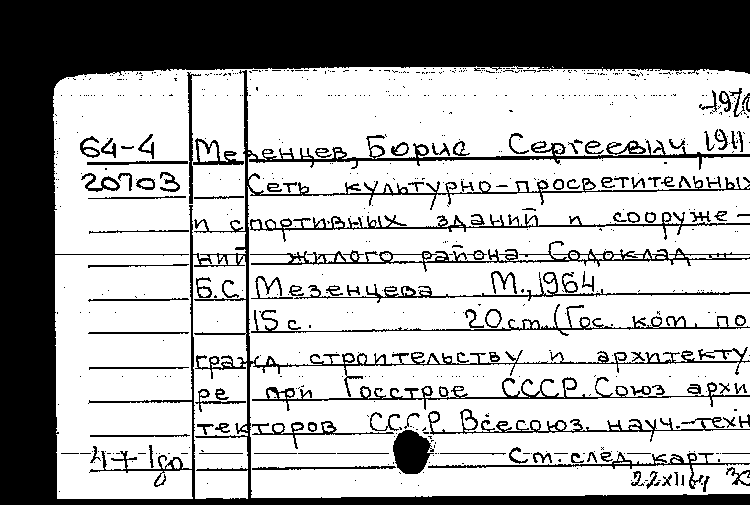 -1970
64-4 Мезенцев, Борис Сергеевич, 1911
20703 Сеть культурно-просветительных
и спортивных зданий и сооруже-
ний жилого района. Содоклад ...
Б.С. Мезенцева М., 1964.
15 с. 20 см. (Гос. ком. по
гражд. строительству и архитекту-
ре при Госстрое СССР. Союз архи
текторов СССР. Всесоюз. науч.-техн
См. след. карт.
22XII64